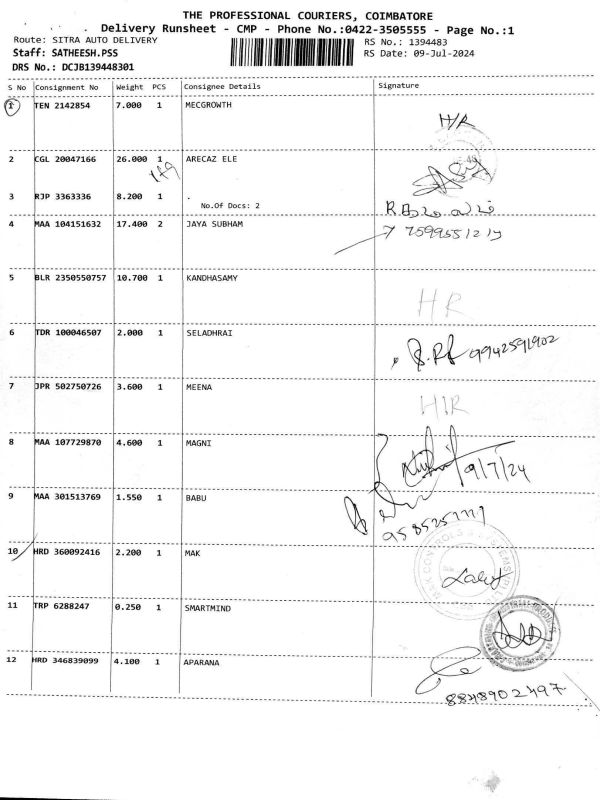 THE PROFESSIONAL COURIERS, COIMBATORE
Delivery Runsheet - CMP - Phone No.:0422-3505555 - Page No.:1
Route: SITRA AUTO DELIVERY
RS No.: 1394483
Staff: SATHEESH.PSS
RS Date: 09-Jul-2024
DRS No.: DCJB139448301
S No Consignment No Weight PCS Consignee Details Signature
1 TEN 2142854 7.000 1 MECGROWTH
H/R
2 CGL 20047166 26.000 1 ARECAZ ELE
3 RJP 3363336 8.200 1 .
No.Of Docs: 2
4 MAA 104151632 17.400 2 JAYA SUBHAM
5 BLR 2350550757 10.700 1 KANDHASAMY
HR
6 TDR 100046507 2.000 1 SELADHRAI
9942591902
7 JPR 502750726 3.600 1 MEENA
H/R
8 MAA 107729870 4.600 1 MAGNI
9/7/24
9 MAA 301513769 1.550 1 BABU
10 HRD 360092416 2.200 1 MAK
11 TRP 6288247 0.250 1 SMARTMIND
12 HRD 346839099 4.100 1 APARANA
8848902497